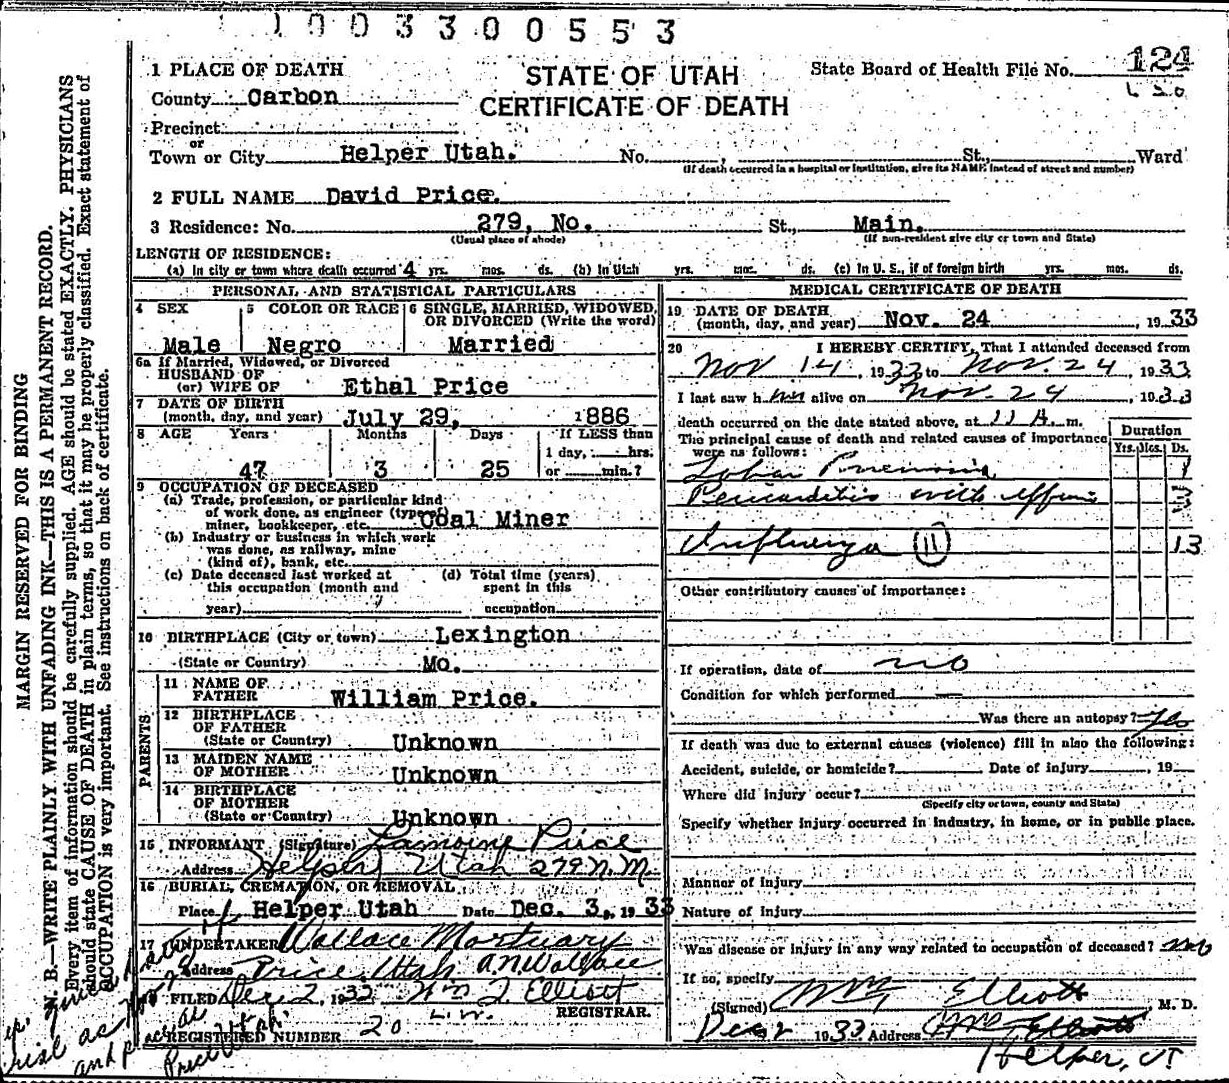 1 9 0 3 3 0 0 5 5 3
1 PLACE OF DEATH
STATE OF UTAH
CERTIFICATE OF DEATH
State Board of Health File No. 124
County Carbon
Precinct
or
Town or City Helper Utah. No. , St., Ward
(If death occurred in a hospital or institution, give its NAME instead of street and number)
2 FULL NAME David Price.
3 Residence: No. 279, No. St., Main.
(Usual place of abode) (If non-resident give city or town and State)
LENGTH OF RESIDENCE:
(a) In city or town where death occurred 4 yrs. mos. ds. (b) In Utah yrs. mos. ds. (c) In U. S., if of foreign birth yrs. mos. ds.
PERSONAL AND STATISTICAL PARTICULARS
4 SEX 5 COLOR OR RACE 6 SINGLE, MARRIED, WIDOWED,
OR DIVORCED (Write the word)
Male Negro Married
6a If Married, Widowed, or Divorced
HUSBAND OF
(or) WIFE OF Ethal Price
7 DATE OF BIRTH
(month, day, and year) July 29, 1886
8 AGE Years Months Days If LESS than
1 day, hrs.
47 3 25 or min.?
9 OCCUPATION OF DECEASED
(a) Trade, profession, or particular kind
of work done, as engineer (type of
miner, bookkeeper, etc. Coal Miner
(b) Industry or business in which work
was done, as railway, mine
(kind of), bank, etc.
(c) Date deceased last worked at (d) Total time (years)
this occupation (month and spent in this
year) occupation
10 BIRTHPLACE (City or town) Lexington
(State or Country) Mo.
PARENTS
11 NAME OF
FATHER William Price.
12 BIRTHPLACE
OF FATHER
(State or Country) Unknown
13 MAIDEN NAME
OF MOTHER Unknown
14 BIRTHPLACE
OF MOTHER
(State or Country) Unknown
15 INFORMANT (Signature) Lamoine Price
Address Helper, Utah 279 N. M.
16 BURIAL, CREMATION, OR REMOVAL
Place Helper Utah Date Dec. 3, 1933
17 UNDERTAKER Wallace Mortuary
Address Price, Utah A.N. Wallace
18 FILED Dec 2, 1933 Wm J. Elliott
L.W. REGISTRAR.
REGISTERED NUMBER 20
MEDICAL CERTIFICATE OF DEATH
19 DATE OF DEATH
(month, day, and year) Nov. 24, 1933
20 I HEREBY CERTIFY, That I attended deceased from
Nov 14, 1933 to Nov. 24, 1933
I last saw him alive on Nov. 24, 1933
death occurred on the date stated above, at 11 A. m.
The principal cause of death and related causes of importance
were as follows:
Duration
Yrs. Mos. Ds.
Lobar Pneumonia 1
Pericarditis with effusion 3
Influenza (11) 13
Other contributory causes of importance:
If operation, date of no
Condition for which performed
Was there an autopsy? Yes
If death was due to external causes (violence) fill in also the following:
Accident, suicide, or homicide? Date of injury , 19
Where did injury occur?
(Specify city or town, county and State)
Specify whether injury occurred in industry, in home, or in public place.
Manner of injury
Nature of injury
Was disease or injury in any way related to occupation of deceased? no
If so, specify
(Signed) Elliott M. D.
Dec 2 1933 Address
Helper, UT
MARGIN RESERVED FOR BINDING
N. B.—WRITE PLAINLY WITH UNFADING INK—THIS IS A PERMANENT RECORD.
Every item of information should be carefully supplied. AGE should be stated EXACTLY. PHYSICIANS
should state CAUSE OF DEATH in plain terms, so that it may be properly classified. Exact statement of
OCCUPATION is very important. See instructions on back of certificate.
and place as
Price Utah.